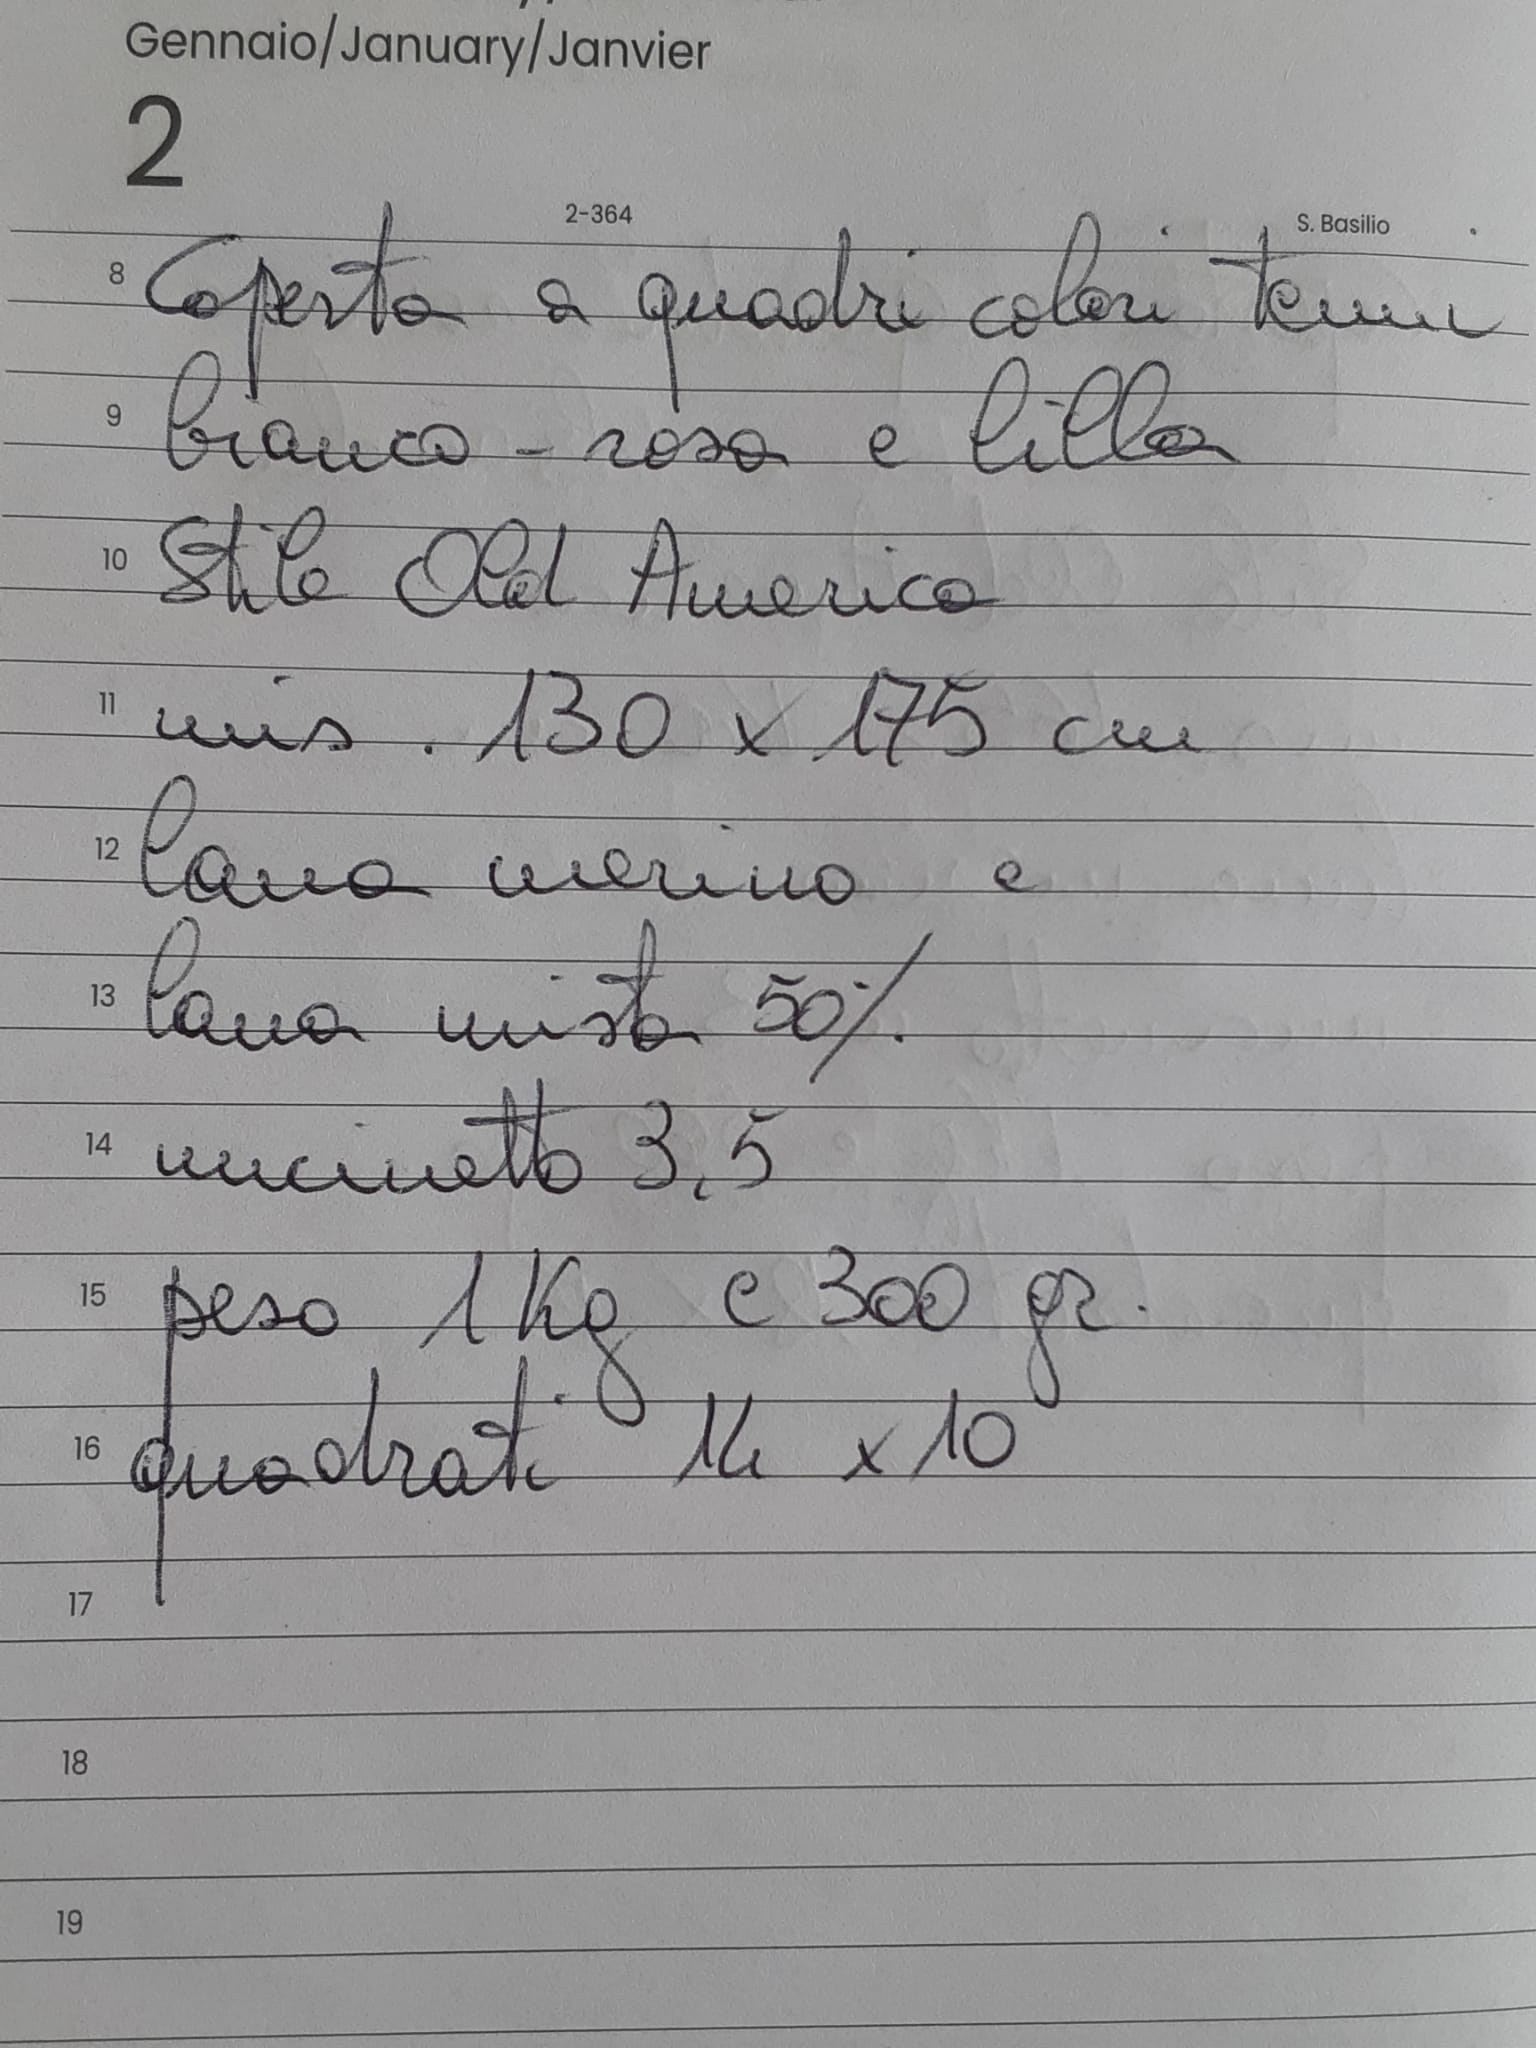 Gennaio/January/Janvier
2
2-364
S. Basilio
8 Coperta a quadri colori tenui
9 bianco - rosa e lilla
10 Stile Old America
11 mis. 130 x 175 cm
12 lana merino e
13 lana mista 50%
14 uncinetto 3,5
15 peso 1 Kg e 300 gr.
16 quadrati 14 x 10
17
18
19